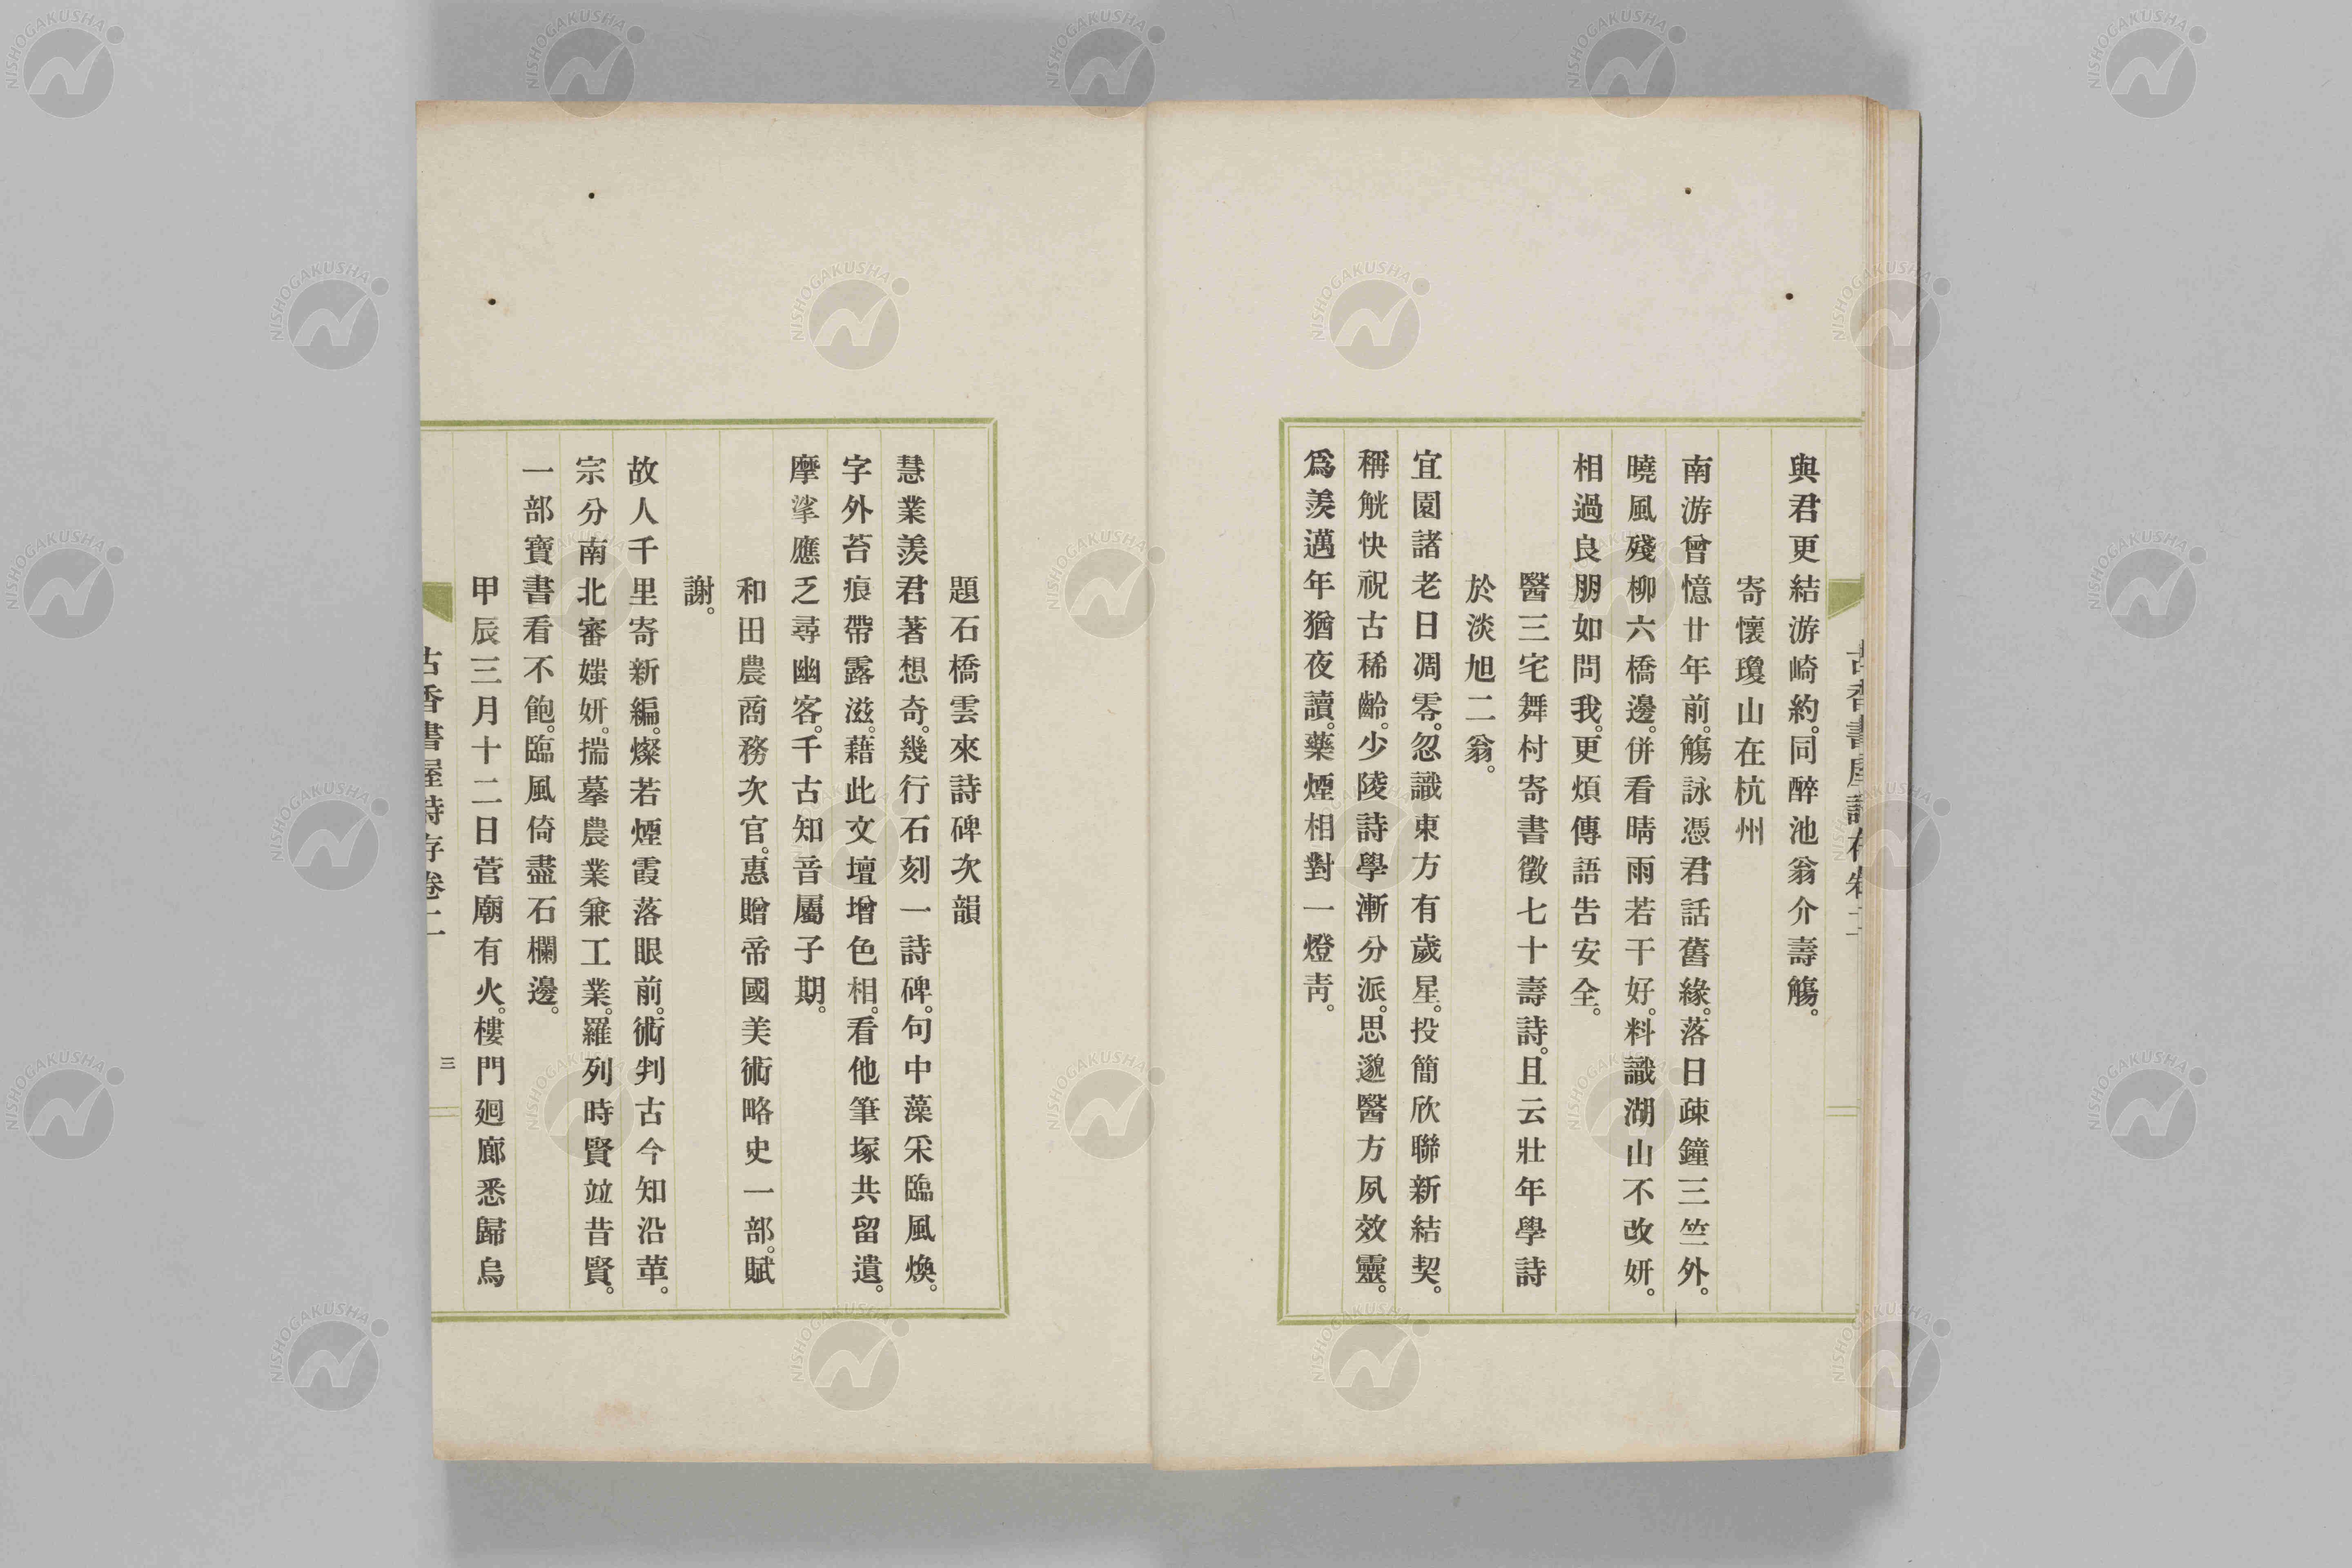 與君更結游崎約。同醉池翁介壽觴。
寄懷瓊山在杭州
南游曾憶廿年前。觴詠憑君話舊緣。落日疎鐘三竺外。
曉風殘柳六橋邊。併看晴雨若干好。料識湖山不改妍。
相過良朋如問我。更煩傳語吿安全。
醫三宅舞村寄書徵七十壽詩。且云壯年學詩
於淡旭二翁。
宜園諸老日凋零。忽識東方有歲星。投簡欣聯新結契。
稱觥快祝古稀齡。少陵詩學漸分派。思邈醫方夙效靈。
爲羨邁年猶夜讀。藥煙相對一燈靑。
題石橋雲來詩碑次韻
慧業羨君著想奇。幾行石刻一詩碑。句中藻采臨風煥。
字外苔痕帶露滋。藉此文壇增色相。看他筆塚共留遺。
摩挲應乏尋幽客。千古知音屬子期。
和田農商務次官。惠贈帝國美術略史一部。賦
謝。
故人千里寄新編。燦若煙霞落眼前。術判古今知沿革。
宗分南北審媸妍。揣摹農業兼工業。羅列時賢竝昔賢。
一部寶書看不飽。臨風倚盡石欄邊。
甲辰三月十二日菅廟有火。樓門廻廊悉歸烏
古香書屋詩存卷二
三
NISHOGAKUSHA